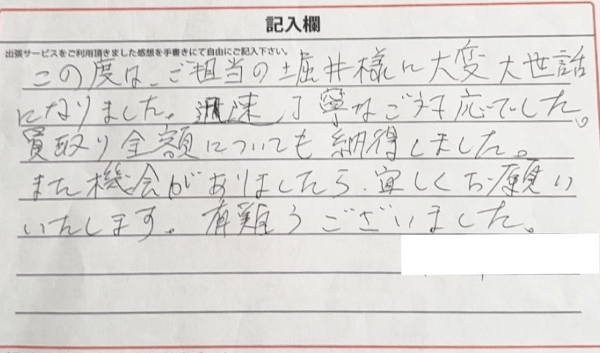 記入欄
出張サービスをご利用頂きました感想を手書きにて自由にご記入下さい。
この度は、ご担当の堀井様に大変大世話
になりました。迅速丁寧なご対応でした。
買取り金額についても納得しました。
また機会がありましたら、宜しくお願い
いたします。有難うございました。